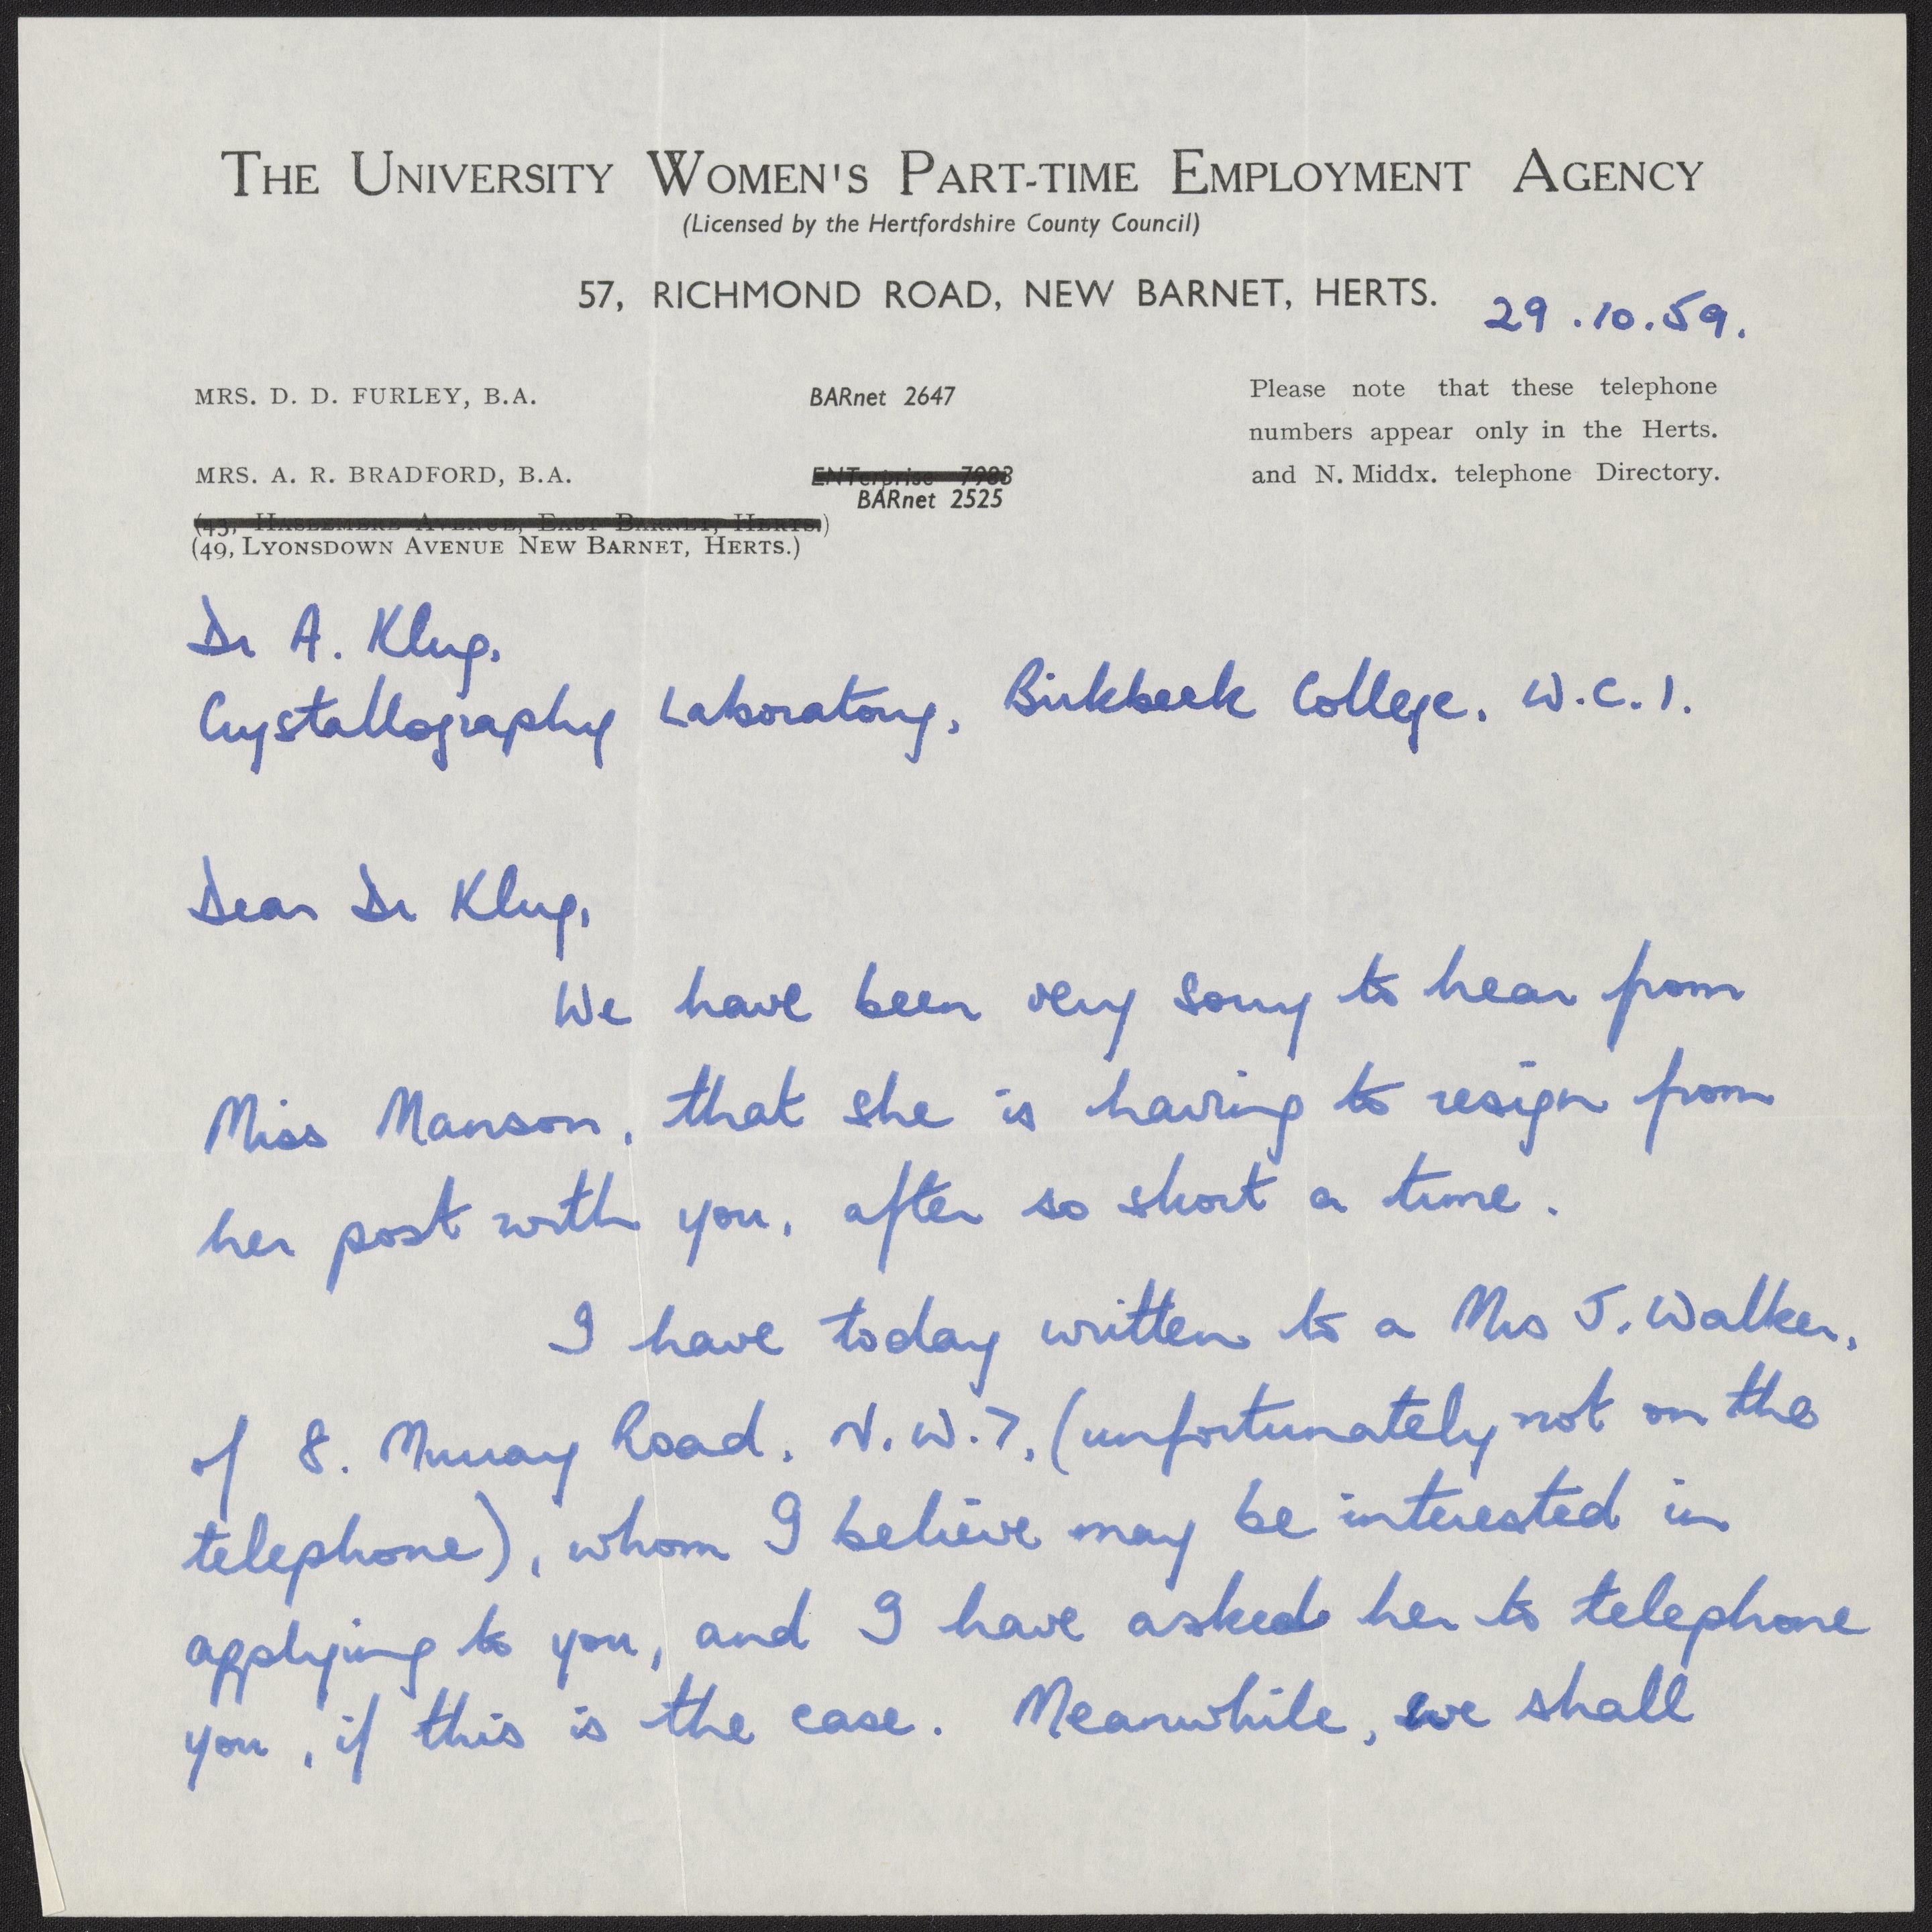 THE UNIVERSITY WOMEN'S PART-TIME EMPLOYMENT AGENCY
(Licensed by the Hertfordshire County Council)
57, RICHMOND ROAD, NEW BARNET, HERTS.
29.10.59.
MRS. D. D. FURLEY, B.A. BARnet 2647 Please note that these telephone
numbers appear only in the Herts.
MRS. A. R. BRADFORD, B.A. ENTerprise 7983 and N. Middx. telephone Directory.
BARnet 2525
(43, HASLEMERE AVENUE, EAST BARNET, HERTS.)
(49, LYONSDOWN AVENUE NEW BARNET, HERTS.)
Dr A. Klug.
Crystallography Laboratory, Birkbeck College. W.C.1.
Dear Dr Klug,
We have been very sorry to hear from
Miss Manson, that she is having to resign from
her post with you, after so short a time.
I have today written to a Mrs J. Walker,
of 8. Murray Road, N.W.7, (unfortunately not on the
telephone), whom I believe may be interested in
applying to you, and I have asked her to telephone
you, if this is the case. Meanwhile, we shall